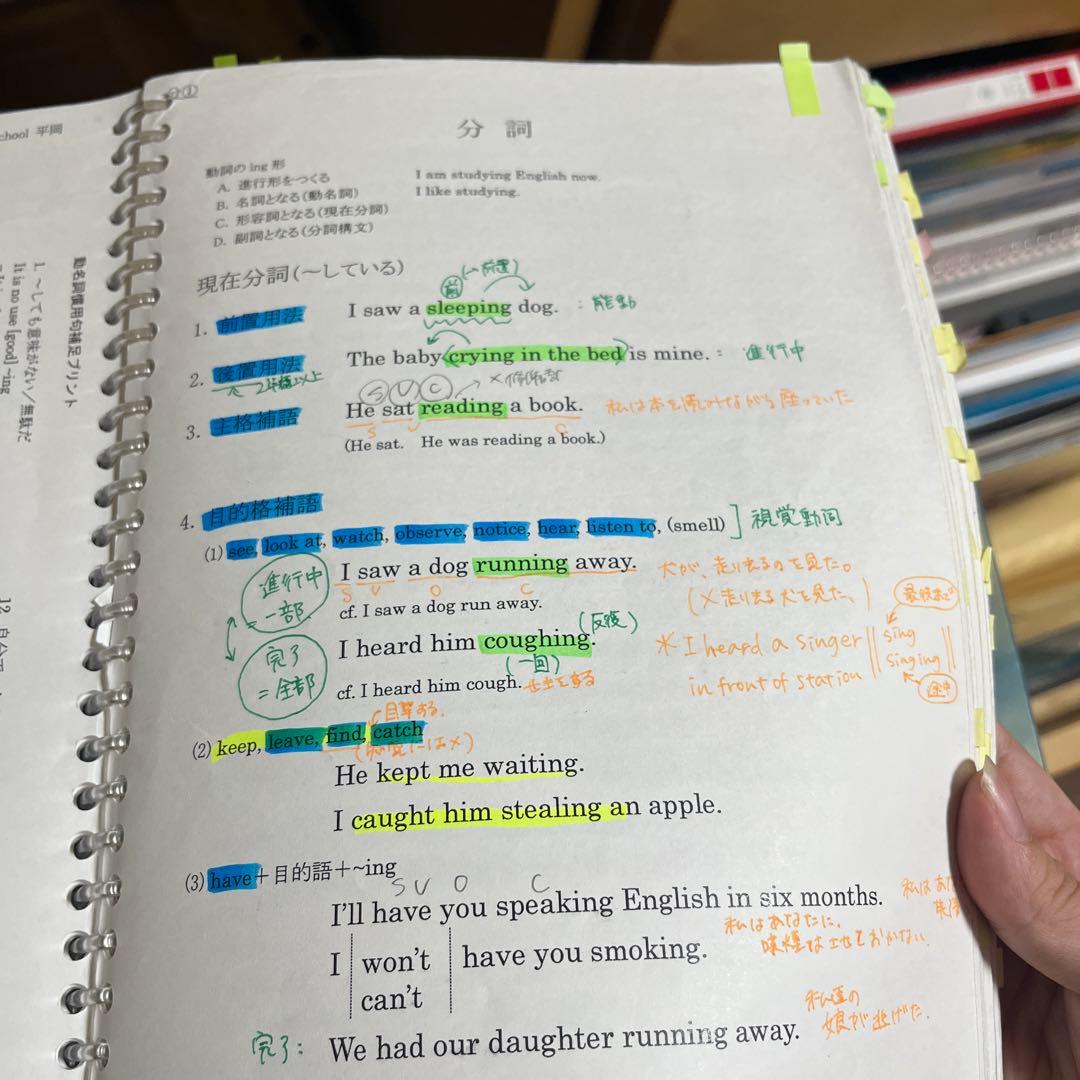 chool 平岡
動名詞慣用句補足プリント
1. ～しても意味がない／無駄だ
It is no use [good] ~ing
分①
分 詞
動詞の ing 形
A. 進行形をつくる I am studying English now.
B. 名詞となる(動名詞) I like studying.
C. 形容詞となる(現在分詞)
D. 副詞となる(分詞構文)
現在分詞(～している)
前
1. 前置用法 I saw a sleeping dog. : 能動
2. 後置用法 The baby crying in the bed is mine. : 進行中
2語以上
S V C
3. 主格補語 He sat reading a book. 私は本を読みながら座っていた
S V C
(He sat. He was reading a book.)
4. 目的格補語
(1) see, look at, watch, observe, notice, hear, listen to, (smell) ] 視覚動詞
進行中 I saw a dog running away. 犬が、走り去るのを見た。
=一部 S V O C
cf. I saw a dog run away. (×走り去る犬を見た、)
(反復)
I heard him coughing. * I heard a singer sing
完了 (一回) singing
=全部 cf. I heard him cough. in front of station 途中
目撃する
(2) keep, leave, find, catch
He kept me waiting.
I caught him stealing an apple.
(3) have＋目的語＋~ing
S V O C
I'll have you speaking English in six months.
私はあなたに、
I won't have you smoking.
can't
完了: We had our daughter running away. 私達の
娘が逃げた.